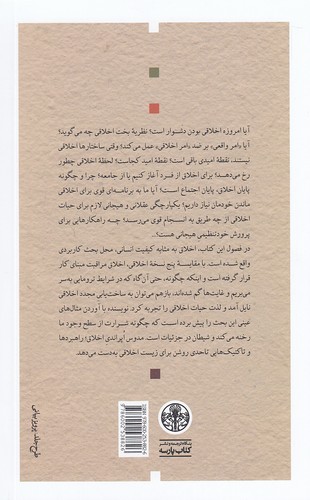 آیا امروزه اخلاقی بودن دشوار است؛ نظریهٔ بخت اخلاقی چه می‌گوید؟
آیا «امر واقعی» بر ضد «امر اخلاقی» عمل می‌کند؛ وقتی ساختارها اخلاقی
نیستند، نقطهٔ امیدی باقی است؟ نقطهٔ امید کجاست؟ لحظهٔ اخلاقی چطور
رخ می‌دهد؛ برای اخلاق از فرد آغاز کنیم یا از جامعه؟ چرا و چگونه
پایان اخلاق، پایان اجتماع است؟ آیا ما به برنامه‌ای قوی برای اخلاقی
ماندن خودمان نیاز داریم؟ یکپارچگی عقلانی و هیجانی لازم برای حیات
اخلاقی از چه طریق به انسجام قوی می‌رسد؟ چه راهکارهایی برای
پرورش خودتنظیمی هیجانی هست؟...
در فصول این کتاب، اخلاق به مثابه کیفیت انسانی، محل بحث کاربردی
واقع شده است. با مقایسهٔ پنج نسخهٔ اخلاقی، اخلاق مراقبت مبنای کار
قرار گرفته است و اینکه چگونه، حتی آن‌گاه که در شرایط ترومایی به‌سر
می‌بریم و غایت‌ها گم شده‌اند، بازهم می‌توان به ساخت‌یابی مجدد اخلاقی
نایل آمد و لذت حیات اخلاقی را تجربه کرد. نویسنده با آوردن مثال‌های
عینی این بحث را پیش برده است که چگونه شرارت از سطح وجود ما
رخنه می‌کند و شیطان در جزئیات است. مدوس اُپراندی اخلاق؛ راهبردها و
تاکتیک‌هایی تاحدی روشن برای زیست اخلاقی به‌دست می‌دهد
بنگاه ترجمه و نشر
کتاب پارسه
طرح جلد: پرویز بیانی